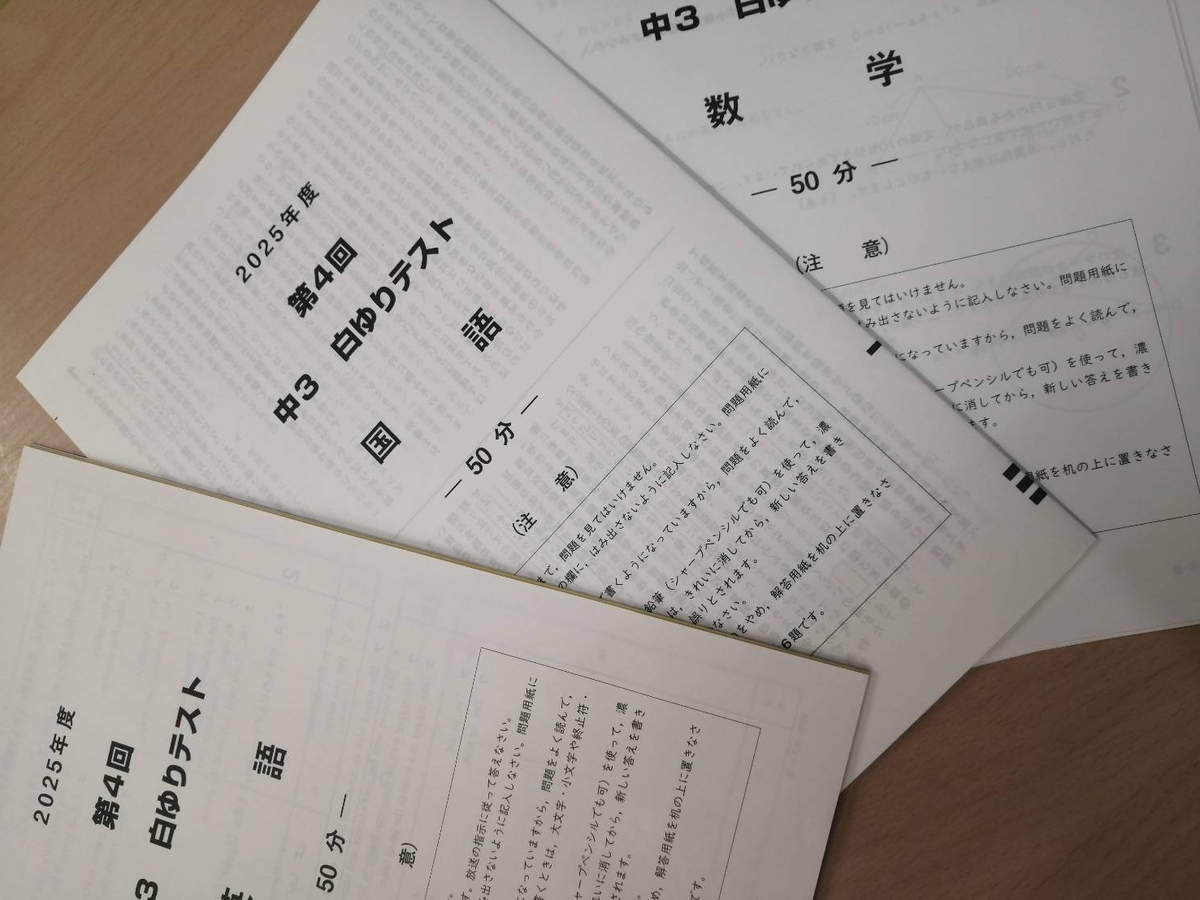 中3 白ゆ
数 学
― 50 分 ―
(注 意)
題を見てはいけません。
はみ出さないように記入しなさい。問題用紙に
になっていますから，問題をよく読んで，
ープペンシルでも可）を使って，濃
に消してから，新しい答えを書き
ます。
用紙を机の上に置きなさ
2025年度
第4回
中3 白ゆりテスト
国 語
― 50 分 ―
(注 意)
まで，問題を見てはいけません。
の欄に，はみ出さないように記入しなさい。問題用紙に
書くようになっていますから，問題をよく読んで，
鉛筆（シャープペンシルでも可）を使って，濃
は，きれいに消してから，新しい答えを書き
誤りとされます。
なさい。
をやめ，解答用紙を机の上に置きなさ
6題です。
2025年度
第4回
3 白ゆりテスト
語
50 分 ―
意)
す。放送の指示に従って答えなさい。
み出さないように記入しなさい。問題用紙に
になっていますから，問題をよく読んで，
書くときは，大文字・小文字や終止符・
ャープペンシルでも可）を使って，濃
れいに消してから，新しい答えを書き
されます。
め，解答用紙を机の上に置きなさ
です。